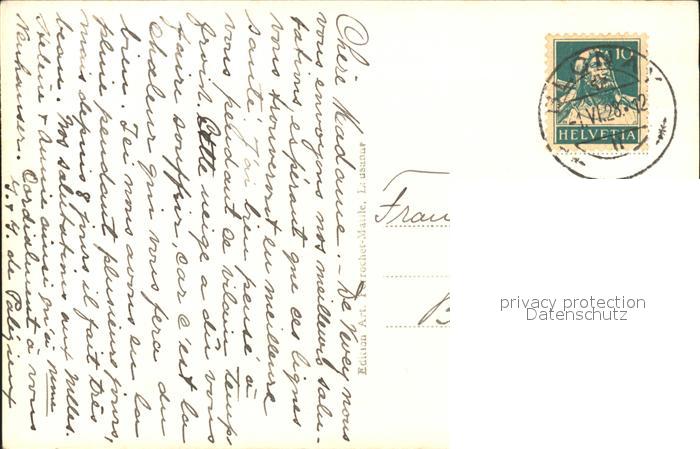 Chère Madame. – De Vevey nous
vous envoyons nos meilleurs salu-
tations, espérant que ces lignes
vous trouveront en meilleure
santé. J'ai bien pensé à
vous pendant ce vilain temps
froid. Cette neige a dû vous
faire souffrir, car c'est la
chaleur qui vous fera du
bien. Ici nous avons eu la
pluie pendant plusieurs jours,
mais depuis 8 jours il fait très
beau. Nos salutations aux Melles.
Hélène & Annie ainsi qu'à Mme
Neuhauser. Cordialement à vous
Edition Art. Perrochet-Matile, Lausanne
Frau
B
10
VI.28.
HELVETIA
privacy protection
Datenschutz